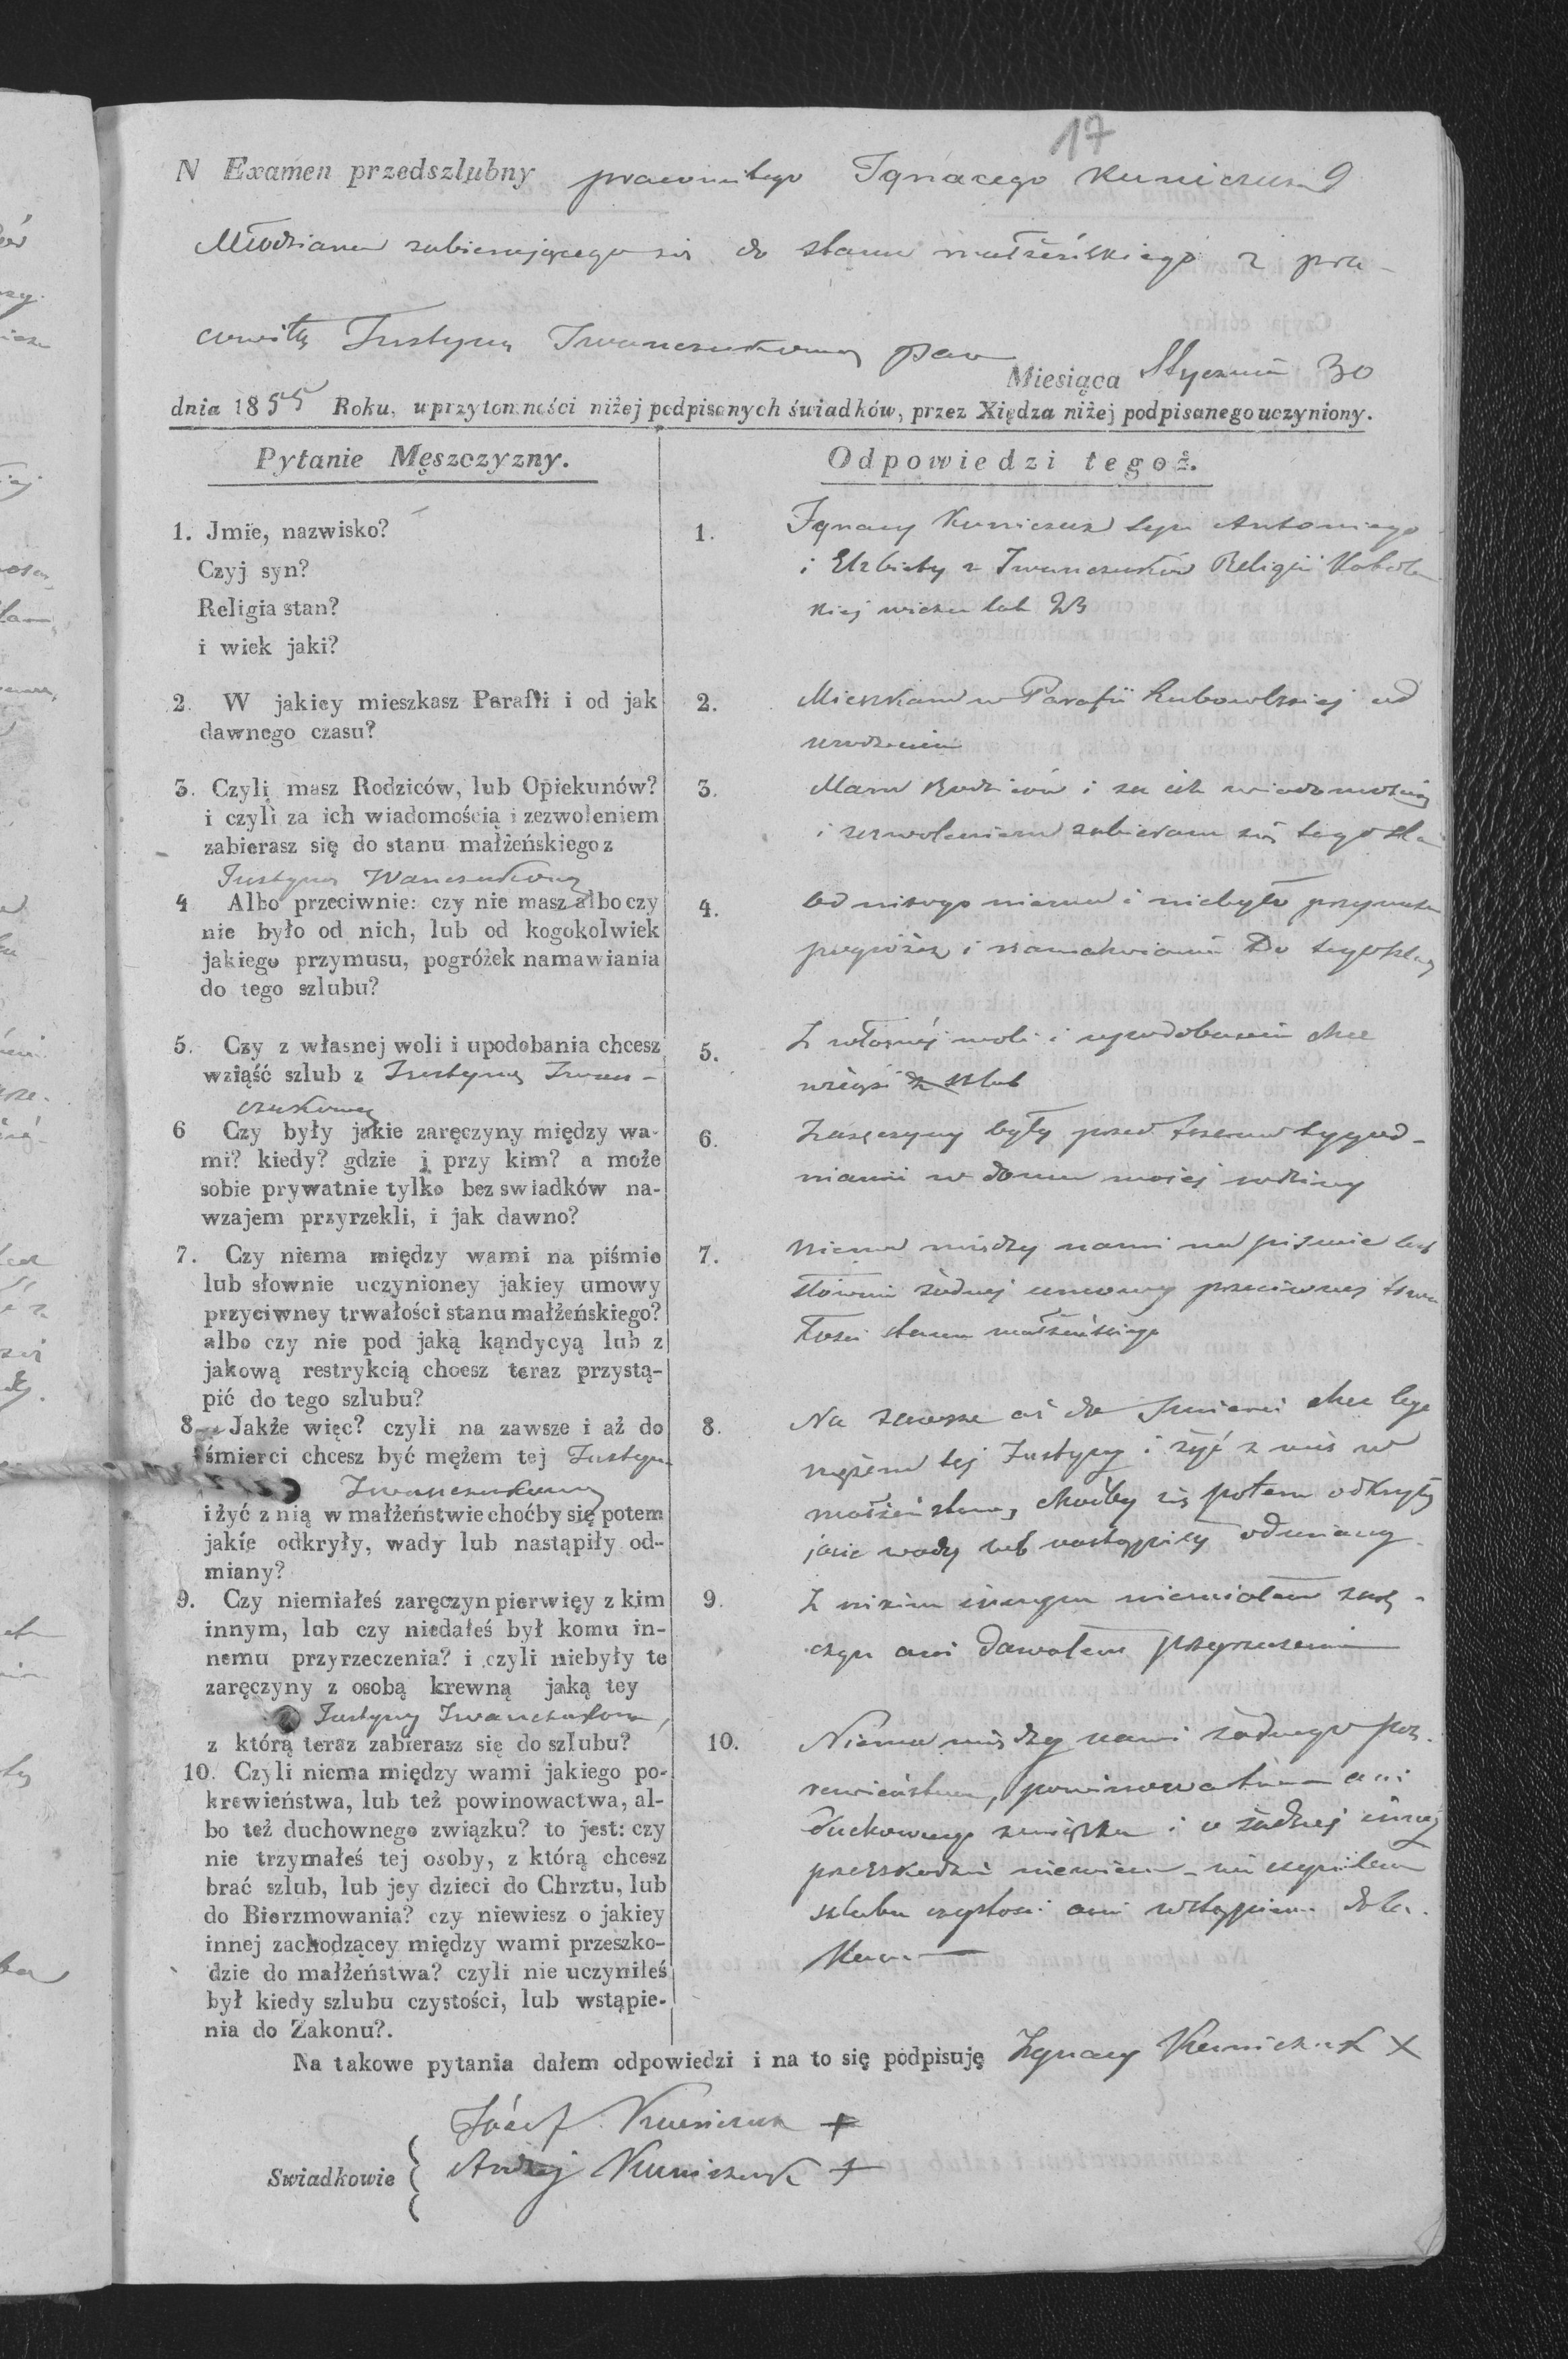 17
N Examen przedszlubny pracowitego Ignacego Kuniczuka
Młodziana zabierającego się do stanu małżeńskiego z pra-
cowitą Justyną Iwanczukowną
Miesiąca Stycznia 30
dnia 1855 Roku, uprzytomności niżej podpisanych świadków, przez Xiędza niżej podpisanego uczyniony.
Pytanie Męszczyzny.
1. Jmie, nazwisko?
Czyj syn?
Religia stan?
i wiek jaki?
2. W jakiey mieszkasz Parafii i od jak
dawnego czasu?
3. Czyli masz Rodziców, lub Opiekunów?
i czyli za ich wiadomością i zezwoleniem
zabierasz się do stanu małżeńskiego z
Justyną Wanczukowną
4 Albo przeciwnie: czy nie masz albo czy
nie było od nich, lub od kogokolwiek
jakiego przymusu, pogróżek namawiania
do tego szlubu?
5. Czy z własnej woli i upodobania chcesz
wziąść szlub z Justyną Iwan-
czukowną
6 Czy były jakie zaręczyny między wa-
mi? kiedy? gdzie i przy kim? a może
sobie prywatnie tylko bez swiadków na-
wzajem przyrzekli, i jak dawno?
7. Czy niema między wami na piśmie
lub słownie uczynioney jakiey umowy
przyciwney trwałości stanu małżeńskiego?
albo czy nie pod jaką kąndycyą lub z
jakową restrykcią chcesz teraz przystą-
pić do tego szlubu?
8. Jakże więc? czyli na zawsze i aż do
śmierci chcesz być mężem tej Justyny
Iwanczukowny
i żyć z nią w małżeństwie choćby się potem
jakie odkryły, wady lub nastąpiły od-
miany?
9. Czy niemiałeś zaręczyn pierwięy z kim
innym, lub czy niedałeś był komu in-
nemu przyrzeczenia? i czyli niebyły te
zaręczyny z osobą krewną jaką tey
Justyny Iwanczukowny
z którą teraz zabierasz się do szlubu?
10. Czyli niema między wami jakiego po-
krewieństwa, lub też powinowactwa, al-
bo też duchownego związku? to jest: czy
nie trzymałeś tej osoby, z którą chcesz
brać szlub, lub jey dzieci do Chrztu, lub
do Bierzmowania? czy niewiesz o jakiey
innej zachodzącey między wami przeszko-
dzie do małżeństwa? czyli nie uczyniłeś
był kiedy szlubu czystości, lub wstąpie-
nia do Zakonu?.
Odpowiedzi tegoż.
1. Ignacy Kuniczuk syn Antoniego
i Elzbiety z Iwanczuków Religii Katolic
kiej wieku lat 23
2. Mieszkam w Parafii od
urodzenia
3. Mam Rodziców i za ich wiadomością
i zezwoleniem zabieram się
4. Od nikogo niema i niebyło przymusu
pogróżek i namawiania Do tego
5. Z własnéj woli i upodobania chce
wziąść szlub
6. Zaręczyny były przed trzema tygod-
niami w domu mojej rodziny
7. Niema między nami na piśmie lub
słownie żadnej umowy przeciwnej trwa
łości stanu małżeńskiego
8. Na zawsze aż do śmierci chce być
mężem tej Justyny i żyć z nią w
małżeństwie, choćby się potem odkryły
jakie wady lub nastąpiły odmiany
9. Z nikim innym niemiałem zarę-
czyn ani dawałem przyrzeczenia
10. Niema między nami żadnego pok-
rewieństwa, powinowactwa ani
duchownego związku i o żadnej innej
przeszkodzie niewiem - nie czyniłem
szlubu czystości ani wstąpienia do Za-
konu
Na takowe pytania dałem odpowiedzi i na to się podpisuję Ignacy Kuniczuk X
Józef Kuniczuk +
Swiadkowie { Andrzej Kuniczuk +